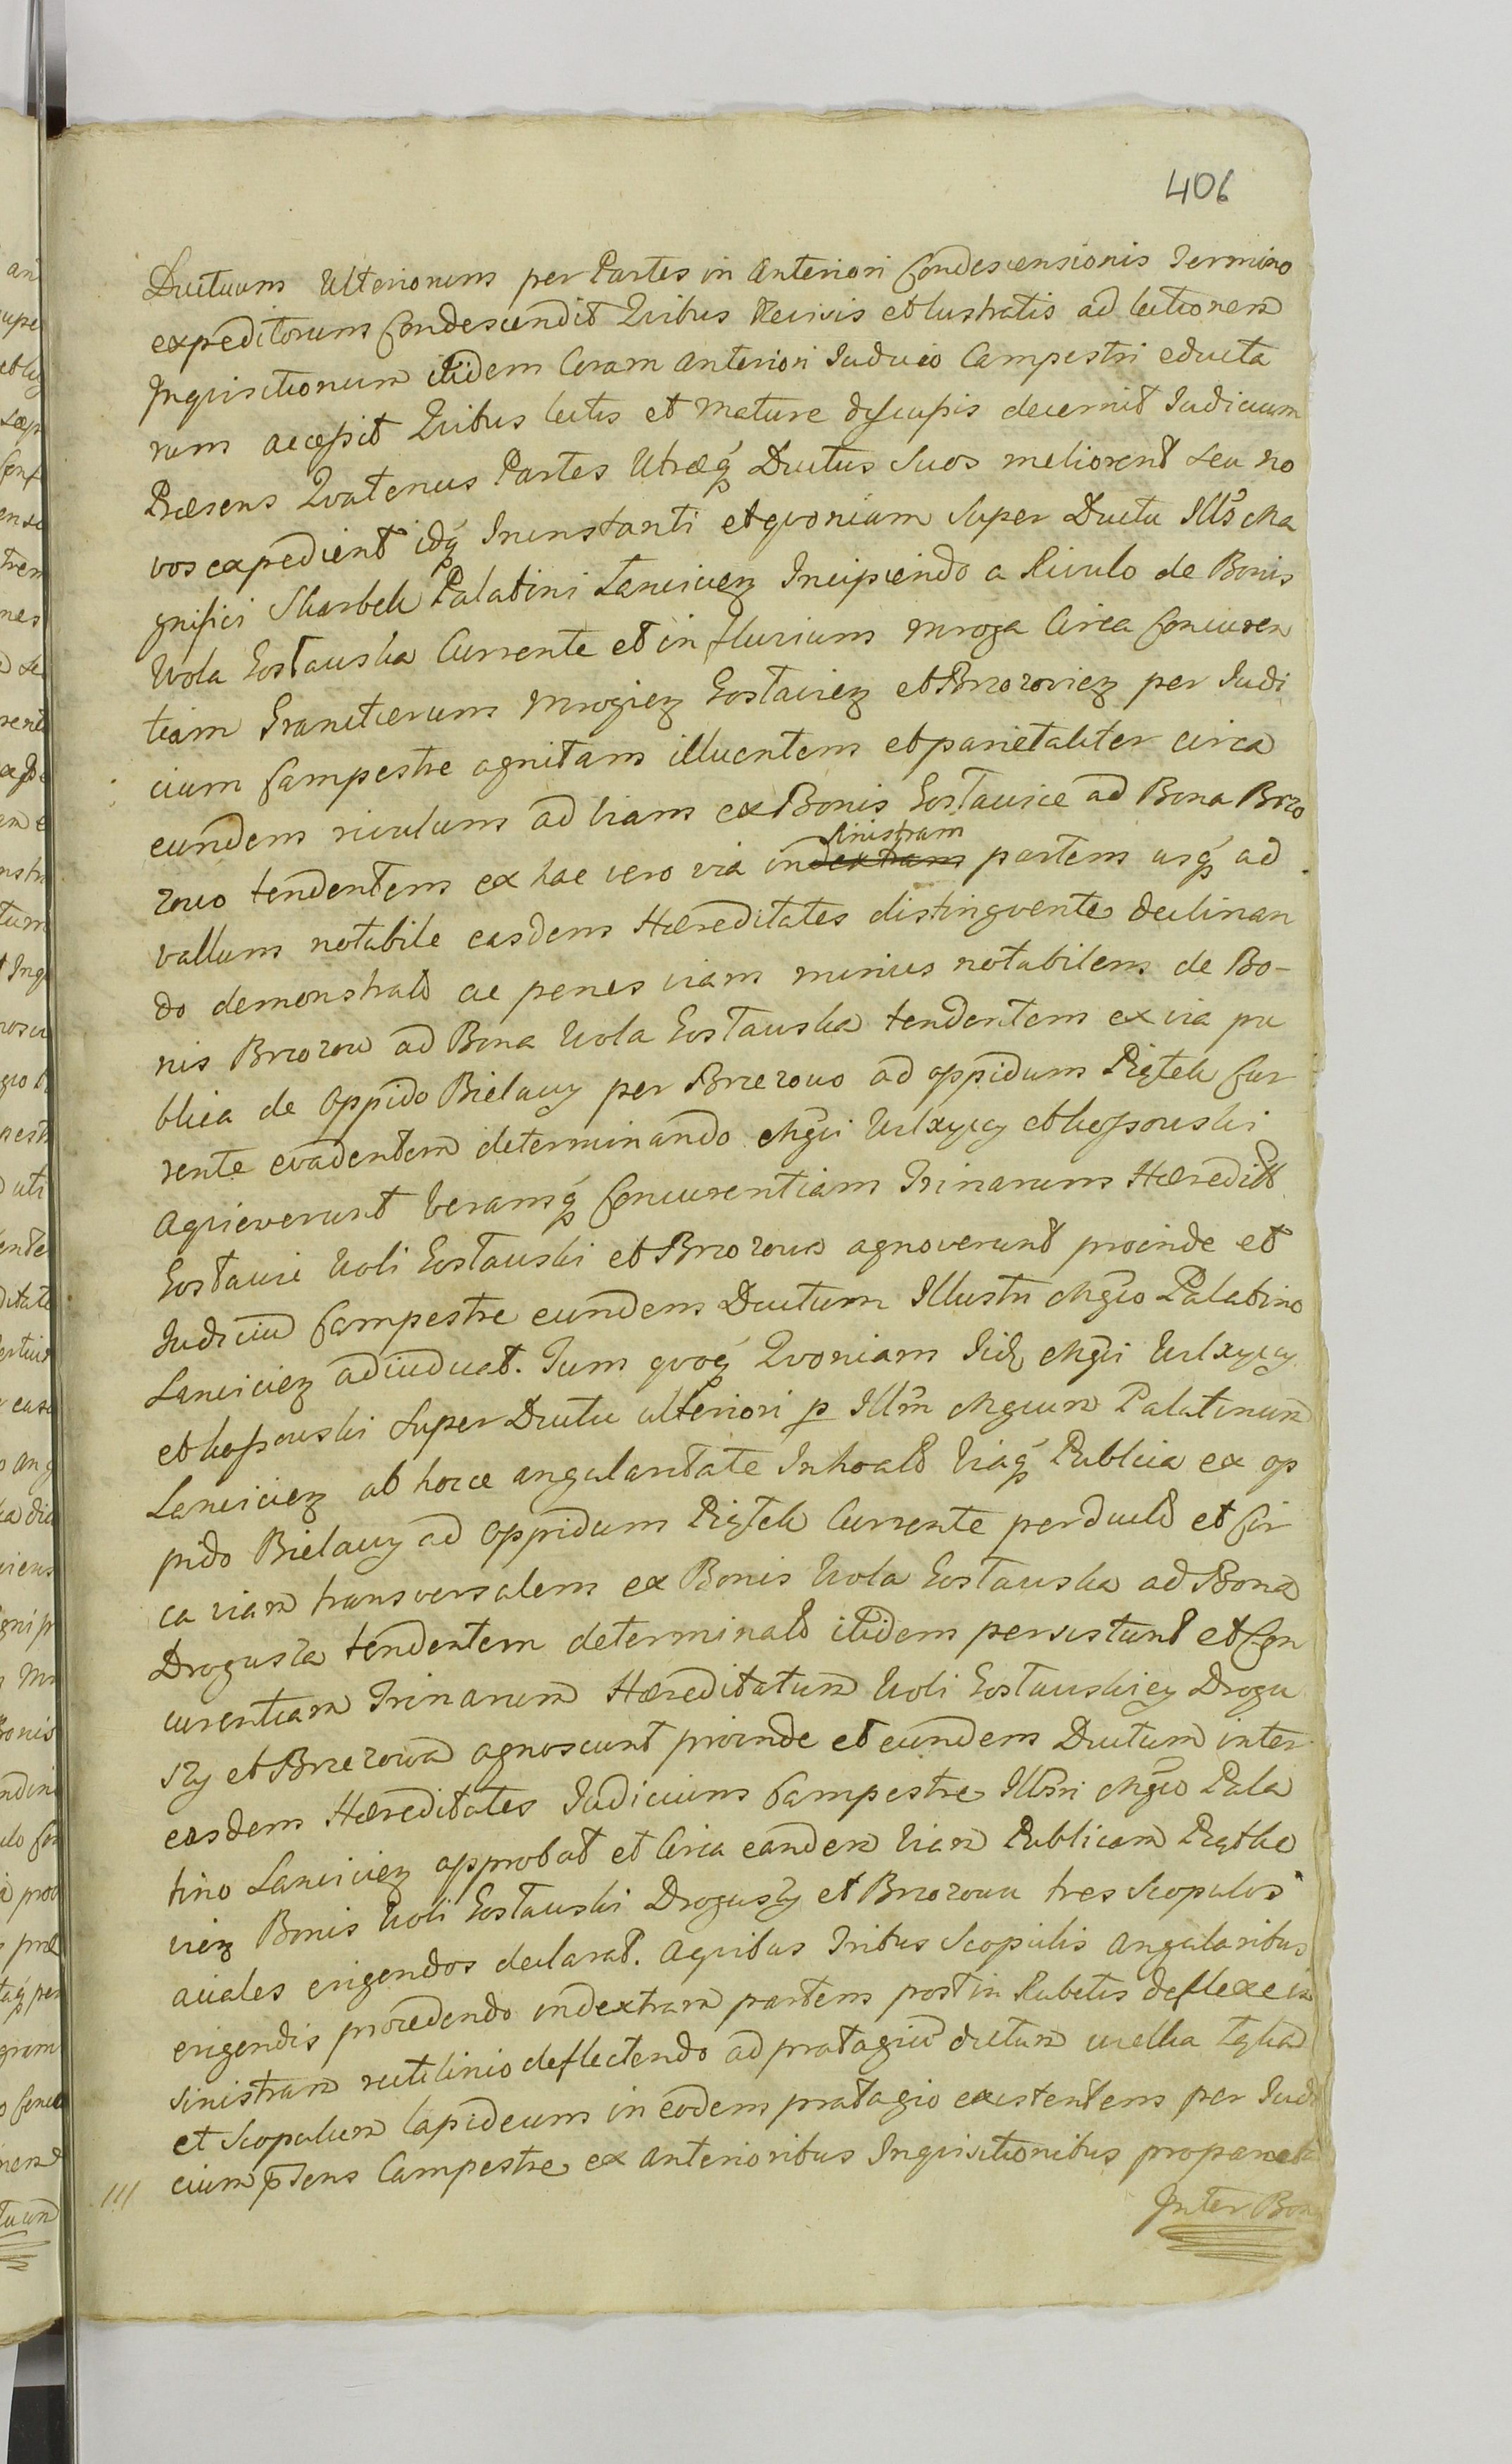 406
Ductuum Ulteriorum per Partes in Anteriori Condescensionis Termino
expeditorum Condescendit Quibus Revisis et lustratis ad lectionem
Inquisitionum itidem Coram Anteriori Iudicio Campestri educta
rum accepit Quibus lectis et mature discussis decernit Iudicium
Præsens Quatenus Partes Utræq₃ Ductus Suos meliorent seu no
vos expediant idq₃ Ininstanti et quoniam Super Ductu Ill͠s Ma
gnifici Skarbek Palatini Lancicien Incipiendo a Rivulo de Bonis
Wola Gostauska Currente et in fluvium Mroga Circa Concuren
tiam Granitierum Mrogien Gostavien et Brzozovien per Iudi
cium Campestre agnitam illuentem et parietaliter circa
eundem rivulum ad viam ex Bonis Gostavice ad Bona Brzo
sinistram
zowo tendentem ex hac vero via in dextram partem usq₃ ad
vallum notabile easdem Hæreditates distinguente declinan
do demonstrato ac penes viam minus notabilem de Bo-
nis Brzozow ad Bona Wola Gostauska tendentem ex via pu
blica de Oppido Bielawy per Brzezowo ad oppidum Piątek Cur
rente evadentem determinando Mg͠ci Wilxycy et
Aquieverunt veramq₃ Concurentiam Trinarum Hæredit͠
Gostavic Woli Gostauski et Brzozowa agnoverunt proinde et
Iudicium Campestre eundem Ductum Illustri Mg͠co Palatino
Lancicien adiudicat. Tum quoq₃ Quoniam Iid͠ Mg͠ci Wilxycy
et Super Ductu ulteriori p Ill͠m Mgcum Palatinum
Lancicien ab hocce angularitate Inhoato Viaq₃ Publica ex op
pido Bielawy ad Oppidum Piątek Currente perducto et Cir
ca viam transversalem ex Bonis Wola Gostauska ad Bona
Drogusza tendentem determinato itidem persistunt et Con
curentiam Trinarum Hæreditatum Woli Gostauskiey Drogu
szy et Brzezowa agnoscunt proinde et eundem Ductum inter
easdem Hæreditates Iudicium Campestre Ill͠ri Mg͠co Pala
tino Lancicien approbat et Circa eandem Viam Publicam Piątko
vien Bonis Woli Gostauski Droguszy et Brzozowu tres Scopulos
aciales erigendos declarat. Aquibus Tribus Scopulis Angularibus
erigendis procedendo in dextram partem post in Rubetis deflexe in
sinistram rectilinio deflectendo ad pratagiu͠ dictum
et Scopulum lapideum in eodem pratagio existentem per Iudi
cium p͠sens Campestre ex Anterioribus Inquisitionibus
Inter Bona